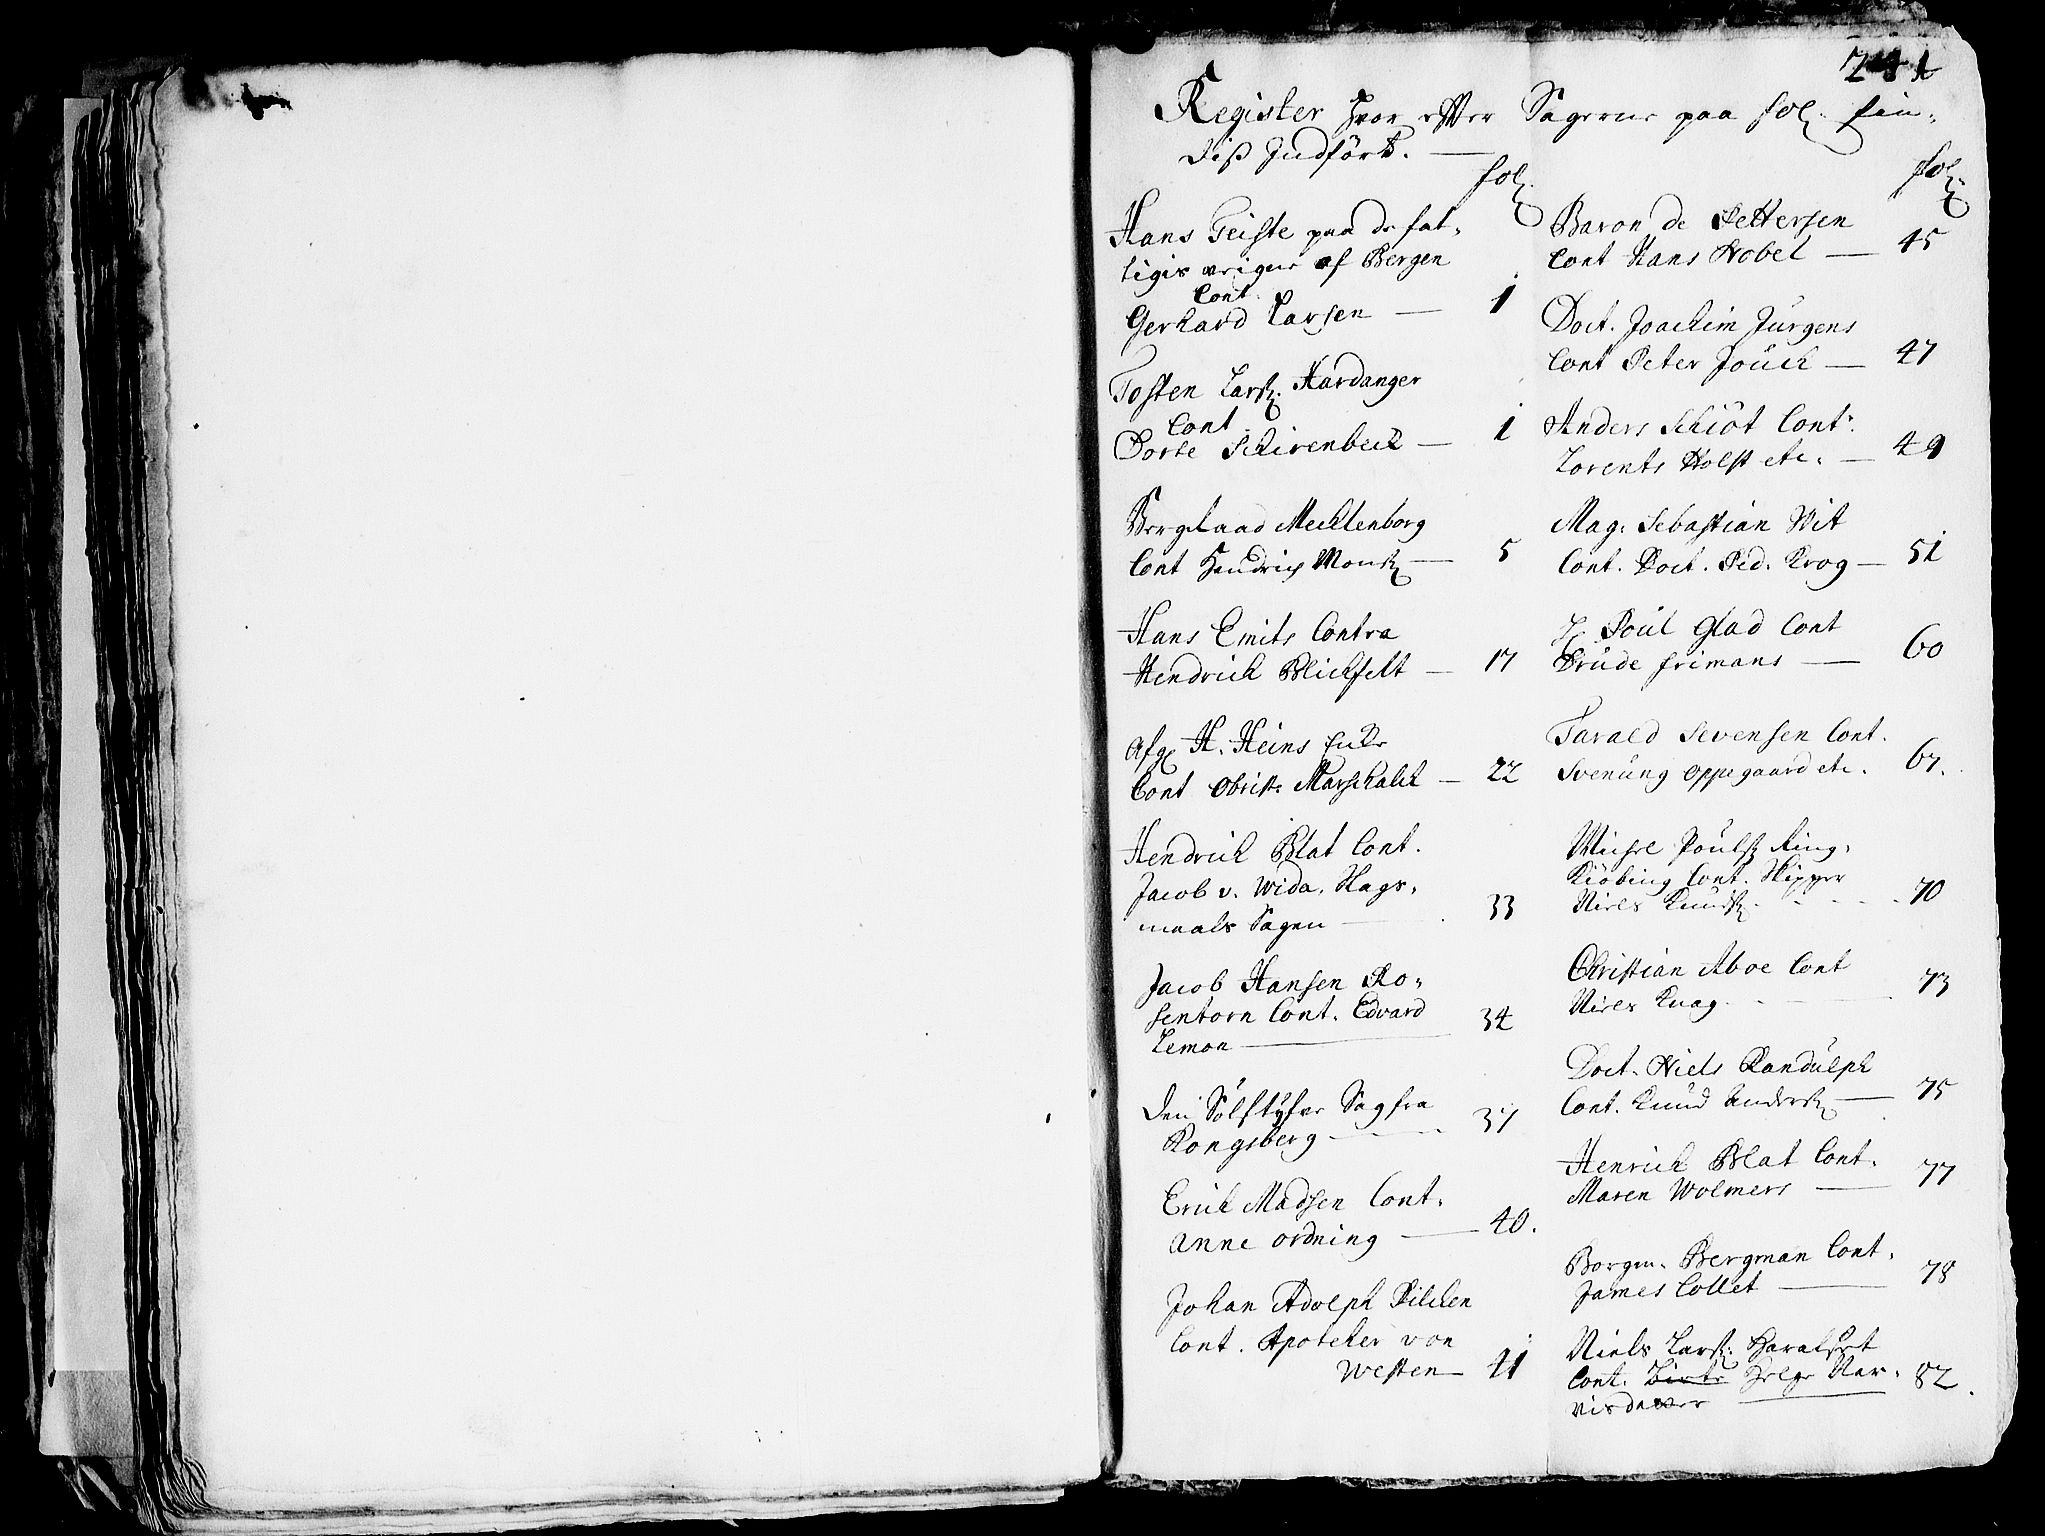 241
Register hvor effter Sagerne paa fol. fin-
diß Indförte.
fol.
Hans Geiste paa de fat-
tigis veigne af Bergen
Cont
Gerhard Larsen — 1
Tosten Larß. Hardanger
Cont
Dorte Schirenbeck — 1
Bergraad Mechlenborg
Cont Hendrich Monß — 5
Hans Emits Contra
Hendrich Blichfelt — 17
Afg. H. Heins Enke
Cont Obrist. Marschalck — 22
Hendrich Blat Cont.
Jacob v. Wida. Slags-
maals Sagen — 33
Jacob Hansen Ro-
sentorn Cont. Edvard
Lemon — 34
Den Sölftyfve Sag fra
Kongsberg — 37
Erich Madsen Cont.
Anne Ordning — 40.
Johan Adolph Pilcken
Cont. Apoteker von
Westen — 41
fol.
Baron de Pettersen
Cont Hans Nobel — 45
Doct. Joachim Jürgens
Cont Peter Jouch — 47
Anders Schiöt Cont.
Lorents Holst etc. — 49
Mag. Sebastian Wit
Cont. Doct. Ped. Krog — 51
H. Poul Glad Cont
Drude frimans — 60
Tarald Sevensen Cont.
Svenung Oppegaard etc. 67.
Michel Poulß Ring-
Kiöbing Cont. Skipper
Niels Knudß — 70
Christian Aboe Cont
Niels Knag — 73
Doct. Niels Randulph
Cont. Knud Anderß — 75
Henrich Blat Cont.
Maren Wolmers — 77
Borgm. Bergman Cont.
James Collet — 78
Niels Larß. Haralset
Cont. Birte Helge Nar-
visdatter — 82.